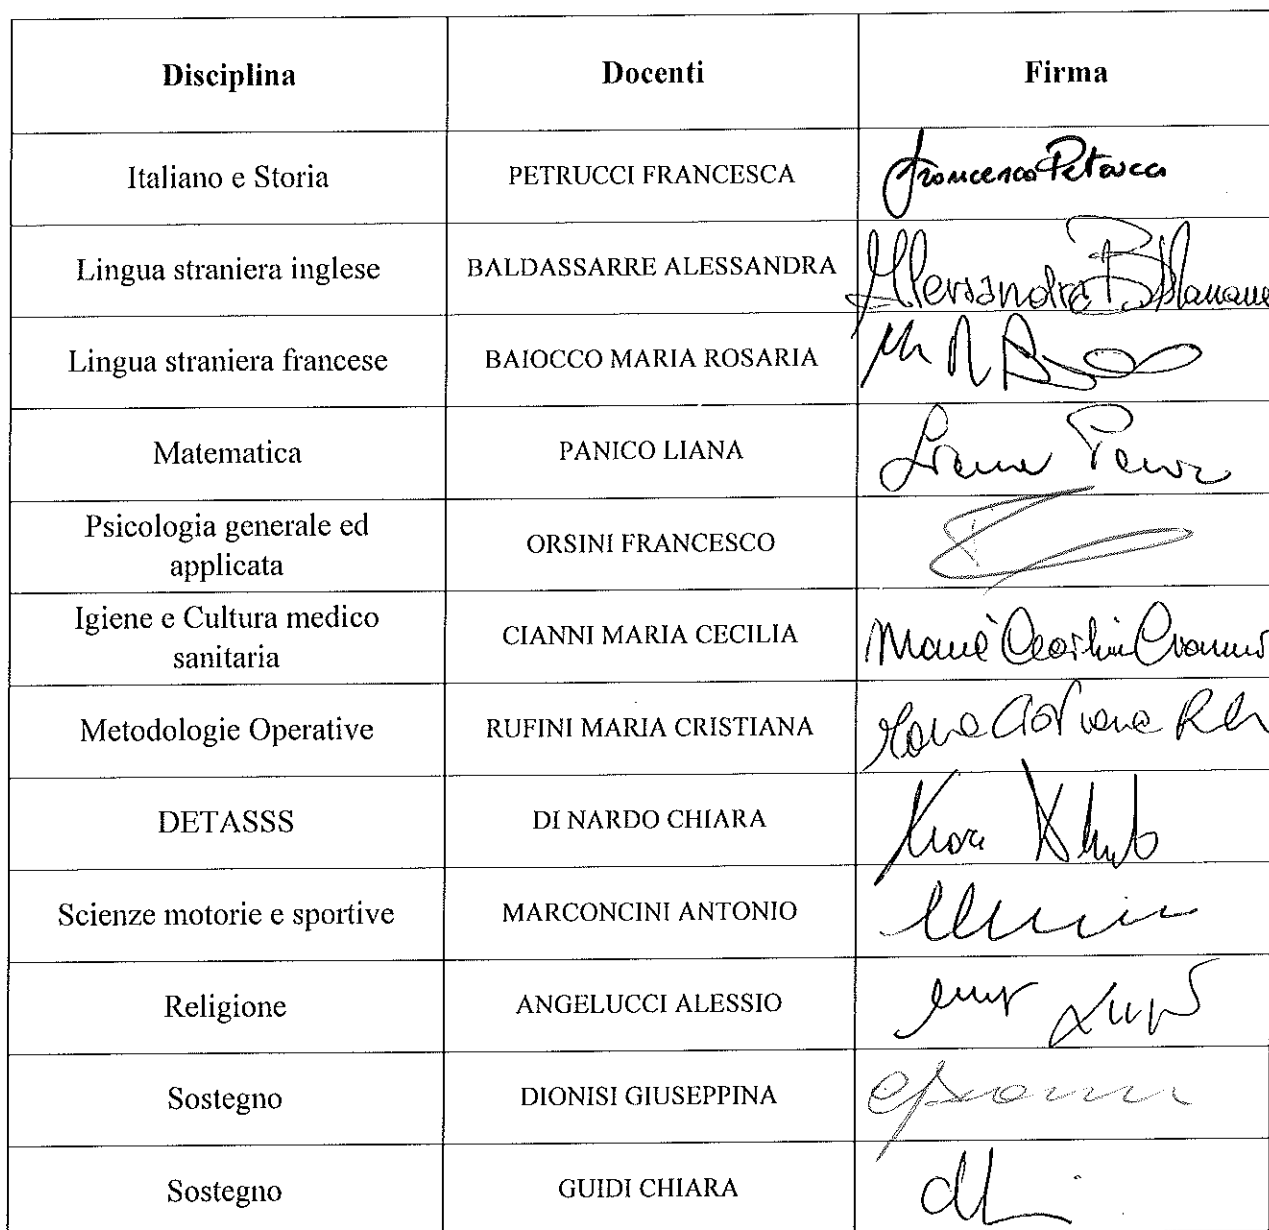 Disciplina Docenti Firma
Italiano e Storia PETRUCCI FRANCESCA Francesca Petrucci
Lingua straniera inglese BALDASSARRE ALESSANDRA Alessandra
Lingua straniera francese BAIOCCO MARIA ROSARIA
Matematica PANICO LIANA Liana
Psicologia generale ed
applicata ORSINI FRANCESCO
Igiene e Cultura medico
sanitaria CIANNI MARIA CECILIA
Metodologie Operative RUFINI MARIA CRISTIANA
DETASSS DI NARDO CHIARA
Scienze motorie e sportive MARCONCINI ANTONIO
Religione ANGELUCCI ALESSIO
Sostegno DIONISI GIUSEPPINA
Sostegno GUIDI CHIARA